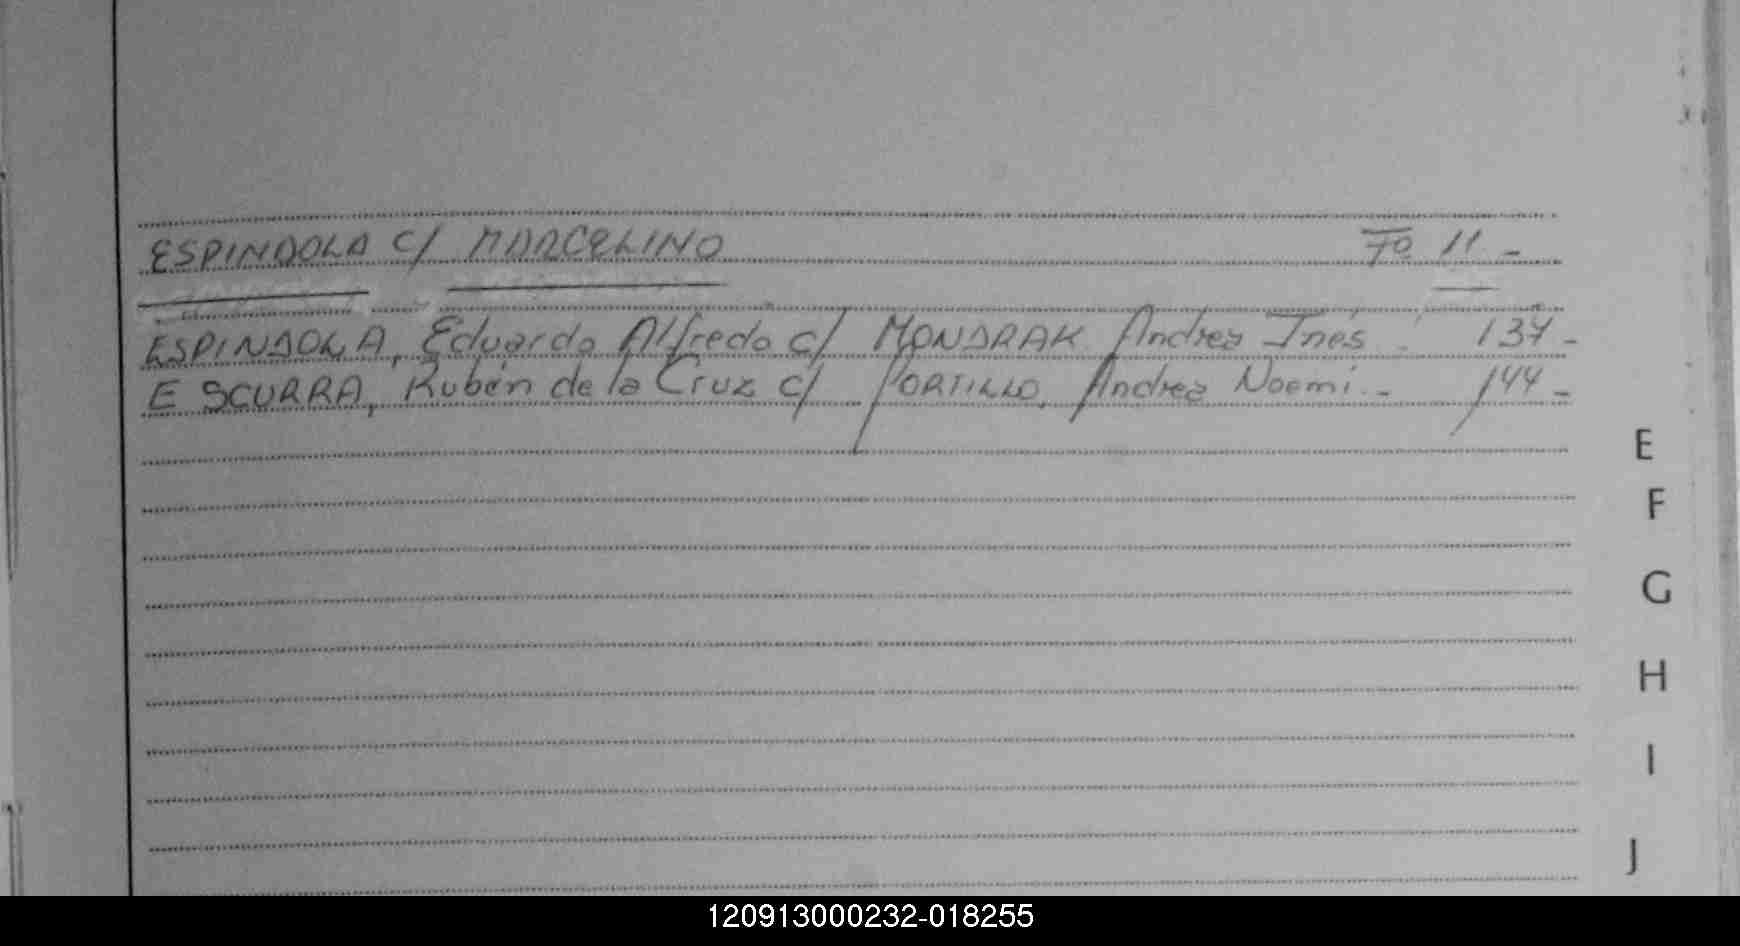 ESPINDOLA c/ MARCELINO Fo 11 -
ESPINDOLA, Eduardo Alfredo c/ MONDRAK Andrea Inés . 137 -
ESCURRA, Rubén de la Cruz c/ PORTILLO, Andrea Noemi. - 144 -
E
F
G
H
I
J
120913000232-018255